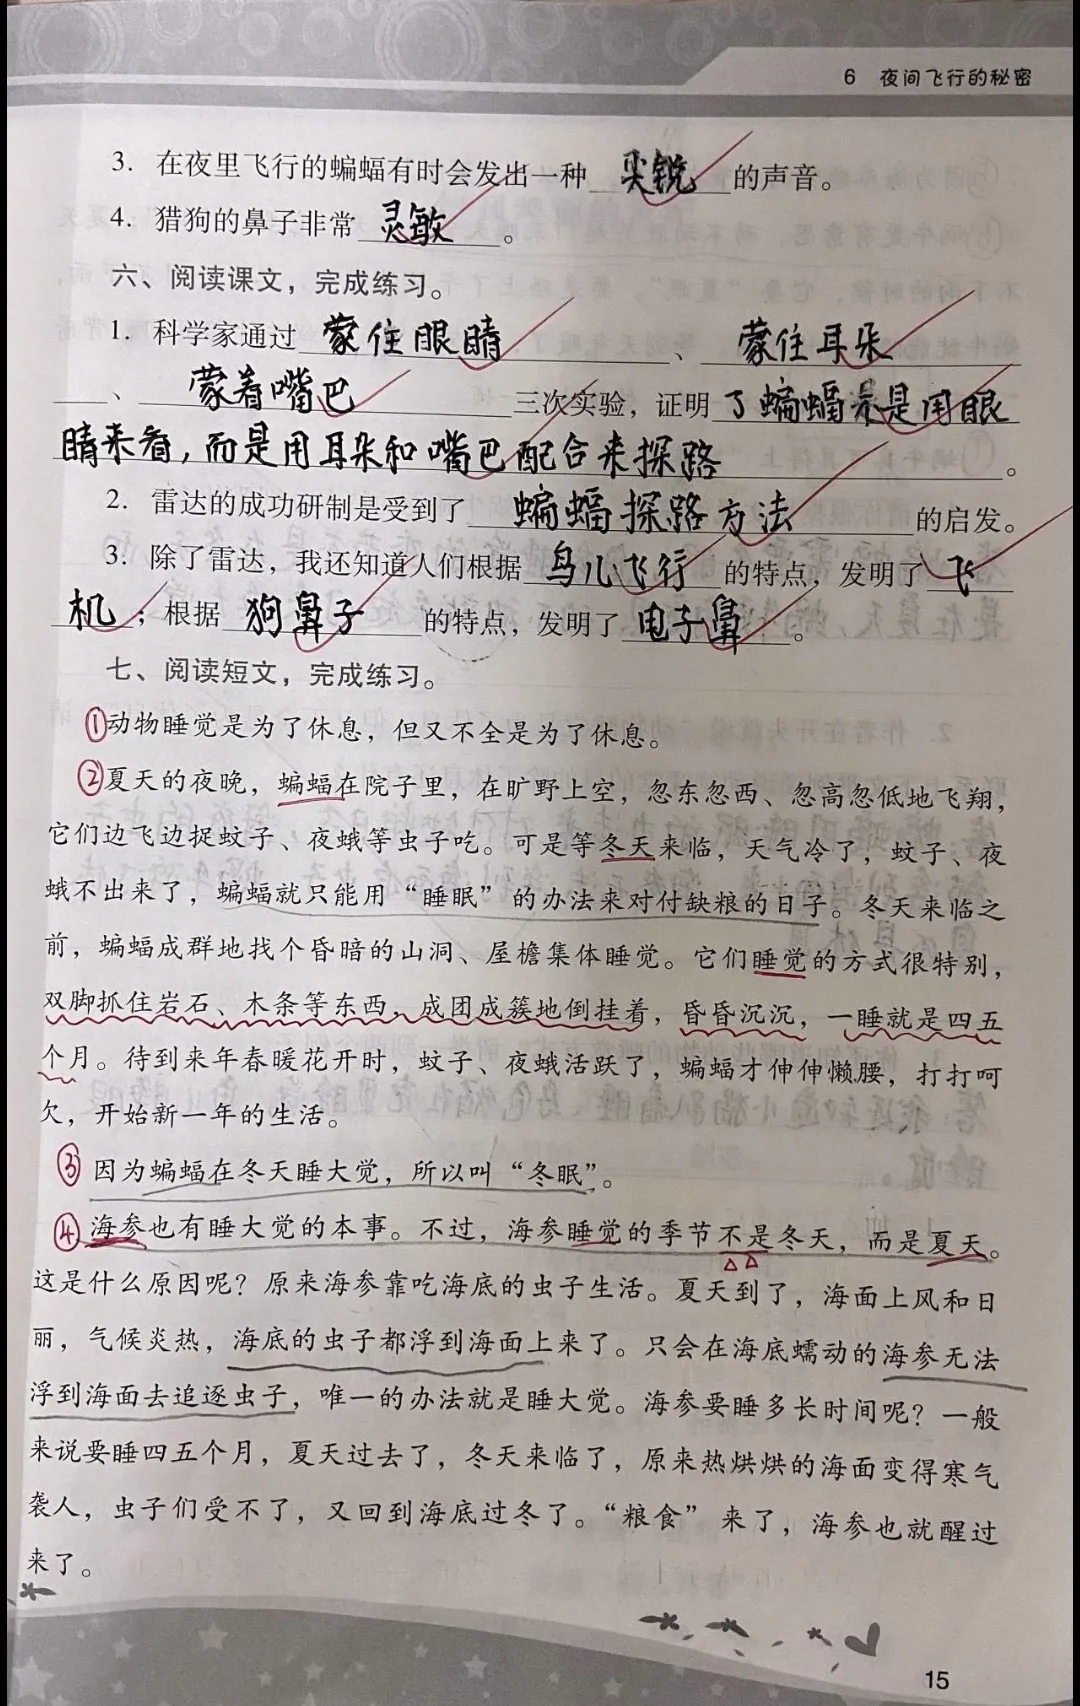 6 夜间飞行的秘密
3. 在夜里飞行的蝙蝠有时会发出一种 尖锐 的声音。
4. 猎狗的鼻子非常 灵敏 。
六、阅读课文，完成练习。
1. 科学家通过 蒙住眼睛 、 蒙住耳朵
、 蒙着嘴巴 三次实验，证明 了蝙蝠不是用眼
睛来看，而是用耳朵和嘴巴配合来探路 。
2. 雷达的成功研制是受到了 蝙蝠探路方法 的启发。
3. 除了雷达，我还知道人们根据 鸟儿飞行 的特点，发明了 飞
机 ；根据 狗鼻子 的特点，发明了 电子鼻 。
七、阅读短文，完成练习。
①动物睡觉是为了休息，但又不全是为了休息。
②夏天的夜晚，蝙蝠在院子里，在旷野上空，忽东忽西、忽高忽低地飞翔，
它们边飞边捉蚊子、夜蛾等虫子吃。可是等冬天来临，天气冷了，蚊子、夜
蛾不出来了，蝙蝠就只能用“睡眠”的办法来对付缺粮的日子。冬天来临之
前，蝙蝠成群地找个昏暗的山洞、屋檐集体睡觉。它们睡觉的方式很特别，
双脚抓住岩石、木条等东西，成团成簇地倒挂着，昏昏沉沉，一睡就是四五
个月。待到来年春暖花开时，蚊子、夜蛾活跃了，蝙蝠才伸伸懒腰，打打呵
欠，开始新一年的生活。
③因为蝙蝠在冬天睡大觉，所以叫“冬眠”。
④海参也有睡大觉的本事。不过，海参睡觉的季节不是冬天，而是夏天。
这是什么原因呢？原来海参靠吃海底的虫子生活。夏天到了，海面上风和日
丽，气候炎热，海底的虫子都浮到海面上来了。只会在海底蠕动的海参无法
浮到海面去追逐虫子，唯一的办法就是睡大觉。海参要睡多长时间呢？一般
来说要睡四五个月，夏天过去了，冬天来临了，原来热烘烘的海面变得寒气
袭人，虫子们受不了，又回到海底过冬了。“粮食”来了，海参也就醒过
来了。
15